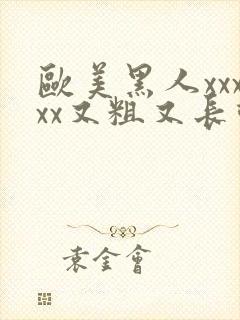 歐美黑人xxx
xx又粗又長
袁金會